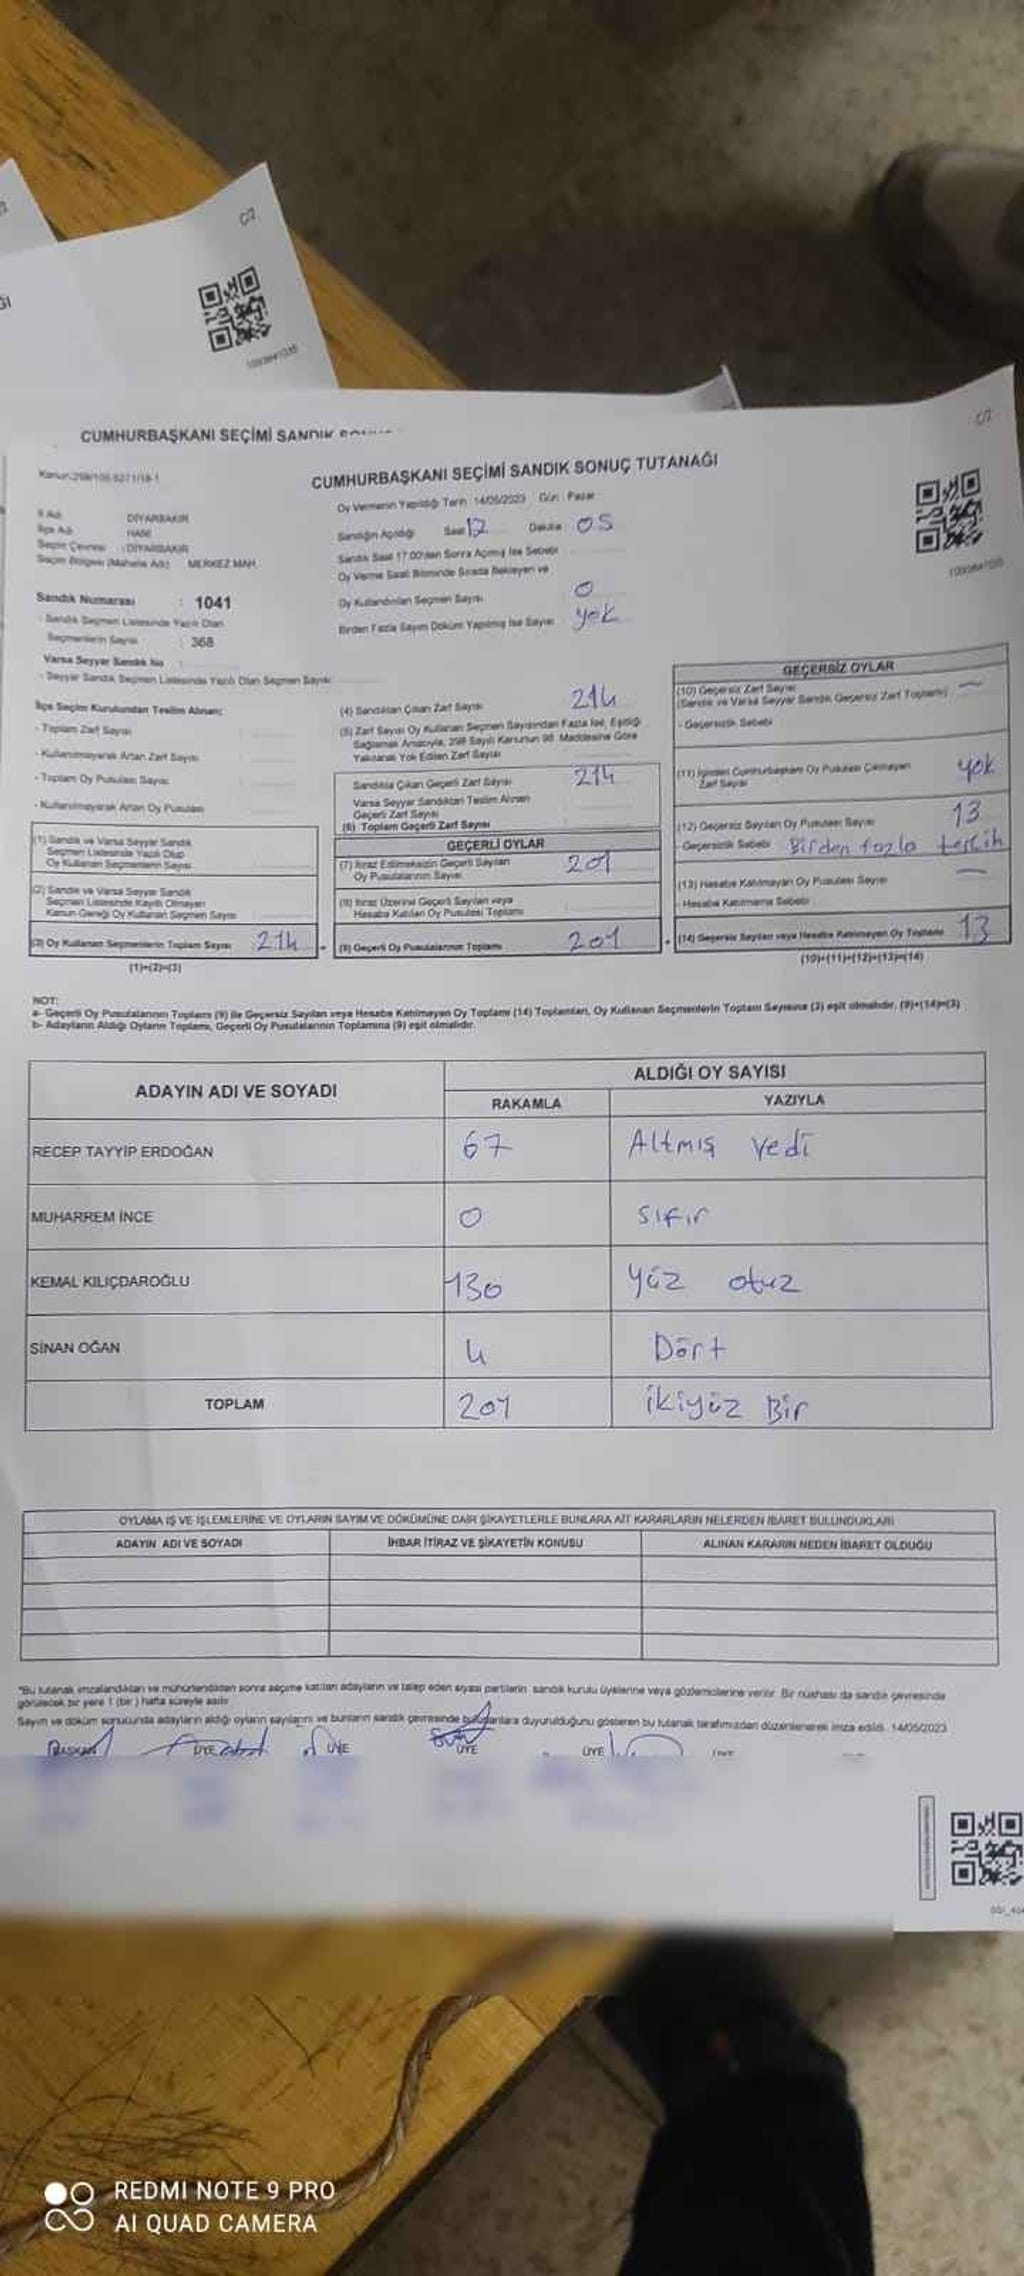 C7
CUMHURBAŞKANI SEÇİMİ SANDIK
C7
CUMHURBAŞKANI SEÇİMİ SANDIK SONUÇ TUTANAĞI
Oy Vermenin Yapıldığı Tarih 14/05/2023 Gün: Pazar
İl Adı DİYARBAKIR
Sandığın Açıldığı Saat 17 Dakika 05
İlçe Adı HANİ
Seçim Çevresi : DİYARBAKIR
Sandık Saat 17.00'den Sonra Açılmış İse Sebebi
Seçim Bölgesi (Mahalle Adı) MERKEZ MAH.
Oy Verme Saati Bitiminde Sırada Bekleyen ve
Oy Kullandırılan Seçmen Sayısı 0
Sandık Numarası : 1041
Birden Fazla Sayım Döküm Yapılmış İse Sayısı yok
- Sandık Seçmen Listesinde Yazılı Olan
Seçmenlerin Sayısı : 368
Varsa Seyyar Sandık No
- Seyyar Sandık Seçmen Listesinde Yazılı Olan Seçmen Sayısı
İlçe Seçim Kurulundan Teslim Alınan:
- Toplam Zarf Sayısı
- Kullanılmayarak Artan Zarf Sayısı
- Toplam Oy Pusulası Sayısı
- Kullanılmayarak Artan Oy Pusulası
(1) Sandık ve Varsa Seyyar Sandık
Seçmen Listesinde Yazılı Olup
Oy Kullanan Seçmenlerin Sayısı
(2) Sandık ve Varsa Seyyar Sandık
Seçmen Listesinde Kayıtlı Olmayan
Kanun Gereği Oy Kullanan Seçmen Sayısı
(3) Oy Kullanan Seçmenlerin Toplam Sayısı 214
(1)+(2)=(3)
(4) Sandıktan Çıkan Zarf Sayısı 214
(5) Zarf Sayısı Oy Kullanan Seçmen Sayısından Fazla İse, Eşitliği
Sağlamak Amacıyla, 298 Sayılı Kanunun 98. Maddesine Göre
Yakılarak Yok Edilen Zarf Sayısı
Sandıkta Çıkan Geçerli Zarf Sayısı 214
Varsa Seyyar Sandıktan Teslim Alınan
Geçerli Zarf Sayısı
(6) Toplam Geçerli Zarf Sayısı
GEÇERLİ OYLAR
(7) İtiraz Edilmeksizin Geçerli Sayılan
Oy Pusulalarının Sayısı 201
(8) İtiraz Üzerine Geçerli Sayılan veya
Hesaba Katılan Oy Pusulası Toplamı
(9) Geçerli Oy Pusulalarının Toplamı 201
GEÇERSİZ OYLAR
(10) Geçersiz Zarf Sayısı —
(Sandık ve Varsa Seyyar Sandık Geçersiz Zarf Toplamı)
- Geçersizlik Sebebi
(11) İçinden Cumhurbaşkanı Oy Pusulası Çıkmayan
Zarf Sayısı yok
(12) Geçersiz Sayılan Oy Pusulası Sayısı 13
- Geçersizlik Sebebi Birden fazla tercih
(13) Hesaba Katılmayan Oy Pusulası Sayısı —
- Hesaba Katılmama Sebebi
(14) Geçersiz Sayılan veya Hesaba Katılmayan Oy Toplamı 13
(10)+(11)+(12)+(13)=(14)
NOT:
a- Geçerli Oy Pusulalarının Toplamı (9) ile Geçersiz Sayılan veya Hesaba Katılmayan Oy Toplamı (14) Toplamları, Oy Kullanan Seçmenlerin Toplam Sayısına (3) eşit olmalıdır. (9)+(14)=(3)
b- Adayların Aldığı Oyların Toplamı, Geçerli Oy Pusulalarının Toplamına (9) eşit olmalıdır.
ADAYIN ADI VE SOYADI ALDIĞI OY SAYISI
RAKAMLA YAZIYLA
RECEP TAYYİP ERDOĞAN 67 Altmış yedi
MUHARREM İNCE 0 sıfır
KEMAL KILIÇDAROĞLU 130 yüz otuz
SİNAN OĞAN 4 Dört
TOPLAM 201 ikiyüz Bir
OYLAMA İŞ VE İŞLEMLERİNE VE OYLARIN SAYIM VE DÖKÜMÜNE DAİR ŞİKAYETLERLE BUNLARA AİT KARARLARIN NELERDEN İBARET BULUNDUKLARI
ADAYIN ADI VE SOYADI İHBAR İTİRAZ VE ŞİKAYETİN KONUSU ALINAN KARARIN NEDEN İBARET OLDUĞU
*Bu tutanak imzalandıktan ve mühürlendikten sonra seçime katılan adayların ve talep eden siyasi partilerin sandık kurulu üyelerine veya gözlemcilerine verilir. Bir nüshası da sandık çevresinde
görülecek bir yere 1 (bir) hafta süreyle asılır.
Sayım ve döküm sonucunda adayların aldığı oyların sayılarını ve bunların sandık çevresinde bulunanlara duyurulduğunu gösteren bu tutanak tarafımızdan düzenlenerek imza edildi. 14/05/2023
BAŞKAN ÜYE ÜYE ÜYE ÜYE
REDMI NOTE 9 PRO
AI QUAD CAMERA